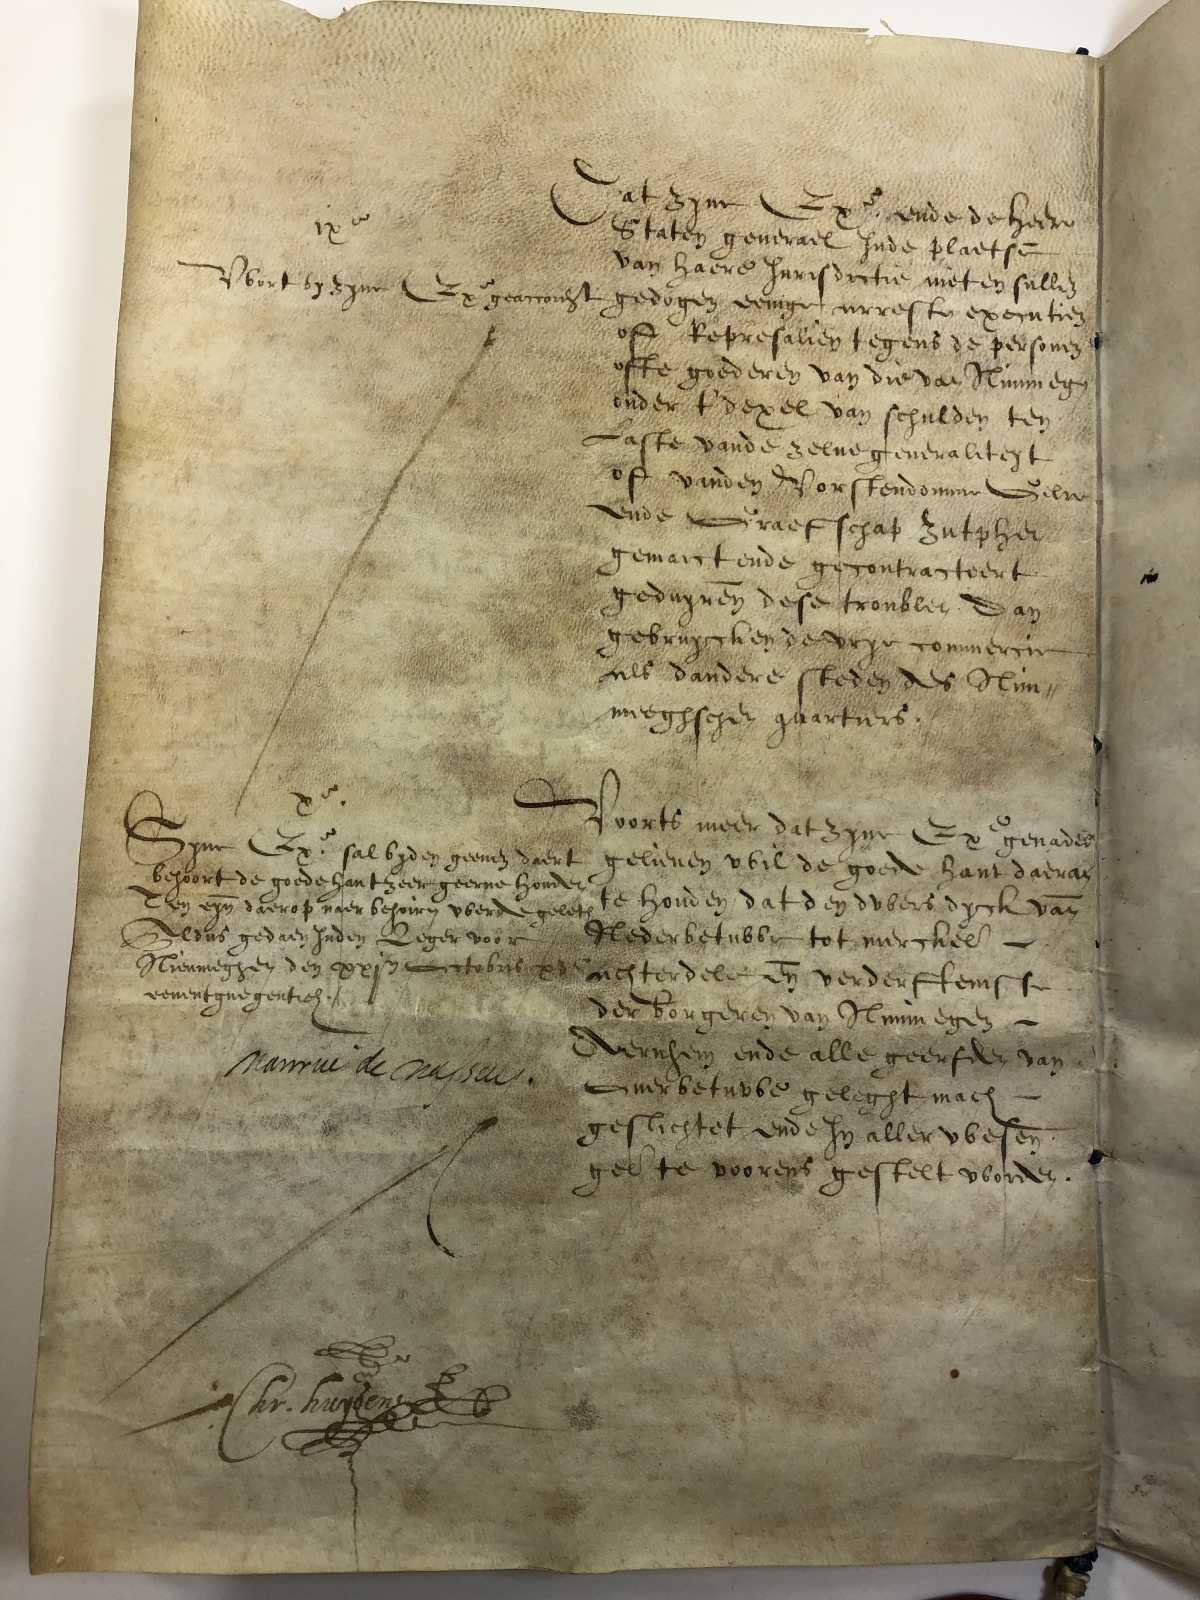 ixe
Wort by zyne Exe geaccordt
Dat zyne Exe. ende de heere
Staten generael Inde plaetse
van haere Jurisdictie niet en sullen
gedogen eenige arreste executien
off Represalien tegens de personen
ofte goederen van die van Nimmegen
onder t'dexel van schulden ten
Laste vande zelue generaliteyt
off vanden Vorstendomme Gelre
ende Graefschap Zutphen
gemaict ende gecontracteert
geduyren dese troublen. Dan
gebruycken de vrye commercie
als dandere steden des Nim=
meeghschen quartiers.
xe.
Syne Exe. sal byden geenen daert
behoort de goede hant zeer geerne houden
Ten eyn daerop naer behoiren werde geleth
Aldus gedaen Inden Leger voor
Nieumeghen den xxjen Octobris xvc
eenentnegentich./
Maurice de Nassau.
Chr. huygens
Voorts meer dat zyne Exe genaden
gelieuen wil de goede hant daeraen
te houden dat den dwers dyck van
Nederbetuwe tot merckel
achterdele en verderffenisse
der borgeren van Nimmegen
Aernhem ende alle geerfden van
Ouerbetuwe geleght mach
geslichtet ende In aller wesen
gel te voorens gestelt worden.